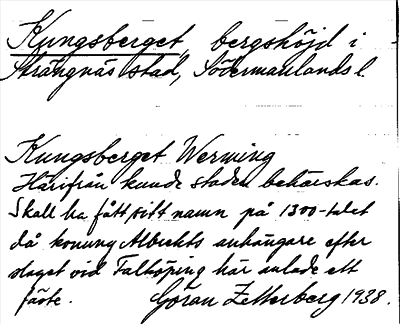 Kungsberget, bergshöjd i
Strängnäs stad, Södermanlands l.
Kungsberget, Werming
Härifrån kunde staden behärskas.
Skall ha fått sitt namn på 1300-talet
då konung Albrekts anhängare efter
slaget vid Falköping här anlade ett
fäste. Göran Zetterberg 1938.